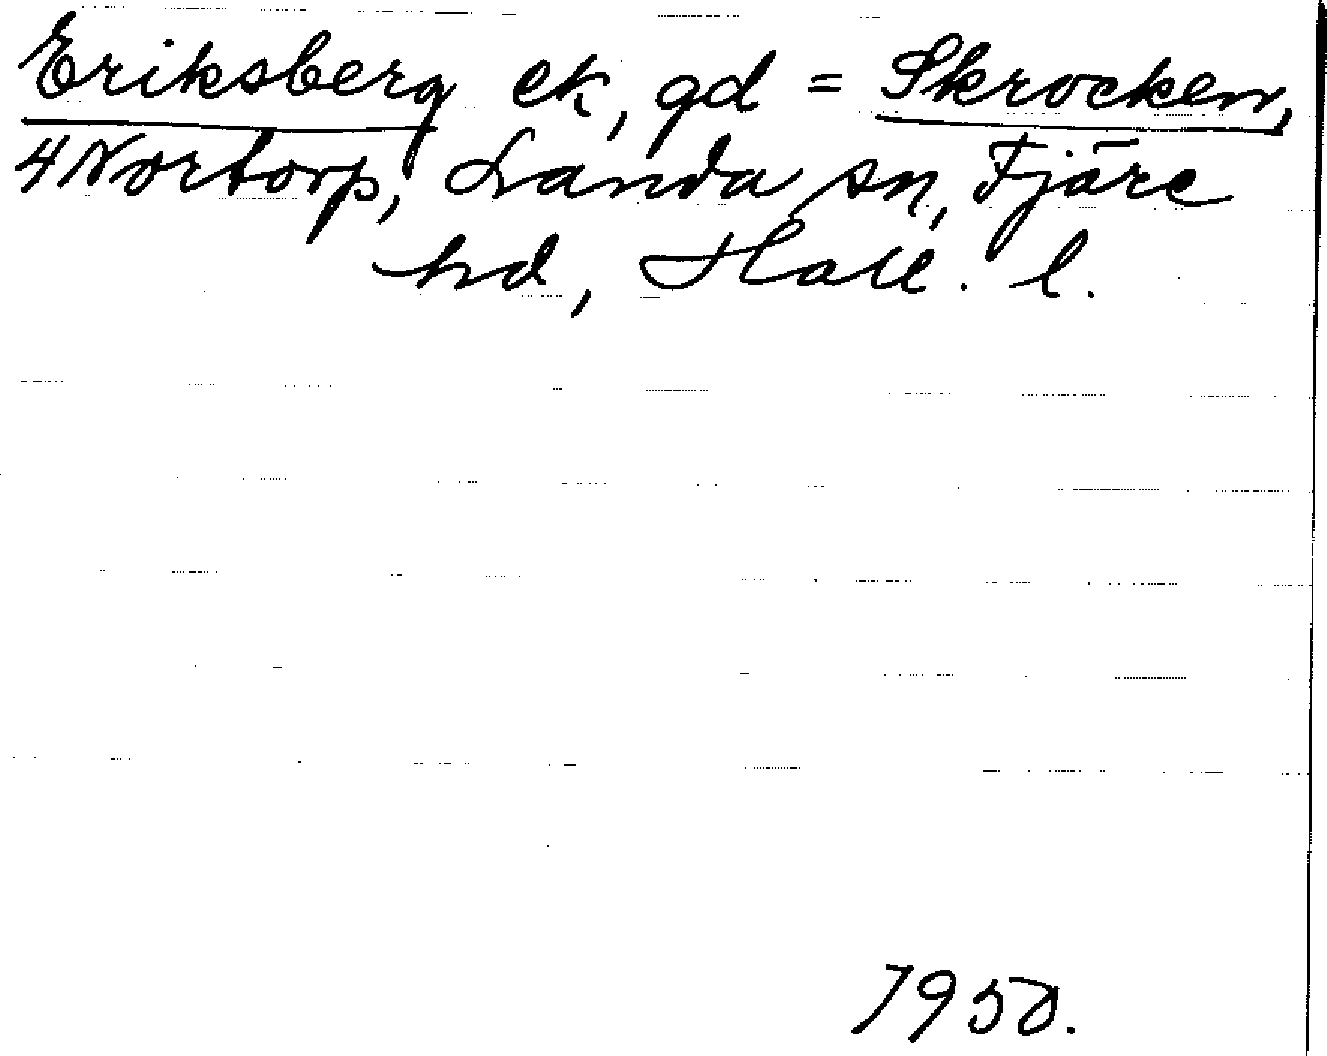 Eriksberg ek, gd = Skrocken,
4 Nortorp, Landa sn, Fjäre
hd, Hall. l.
1950.